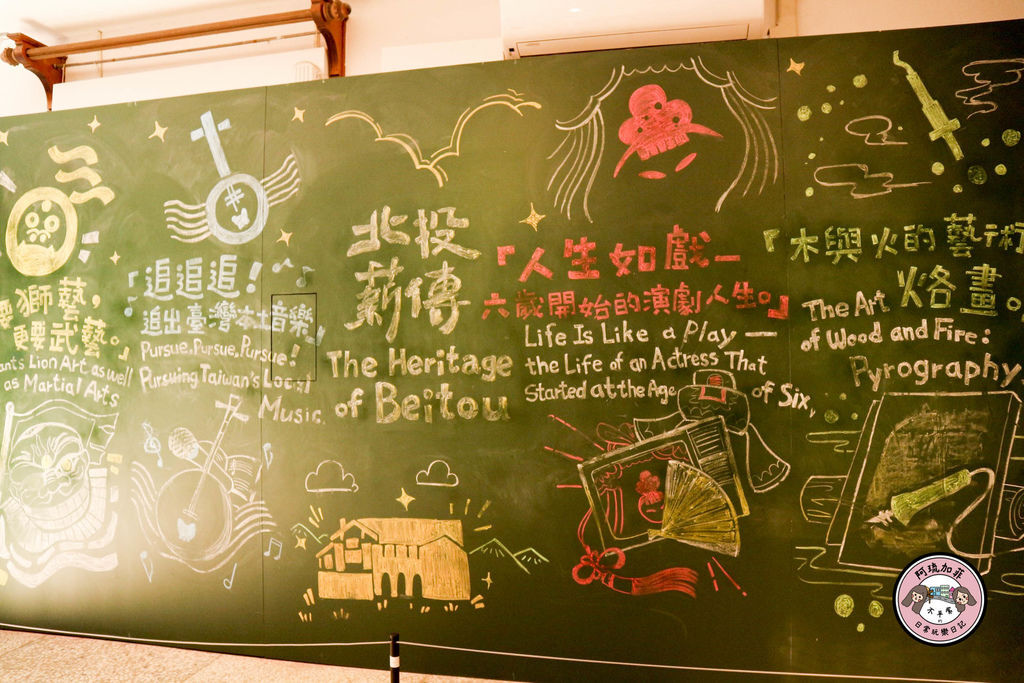 要獅藝,
更要武藝。」
ants Lion Art as well
as Martial Arts
「追追追!
追出臺灣本土音樂」
Pursue, Pursue, Pursue!
Pursuing Taiwan's Local
Music.
北投
薪傳
The Heritage
of Beitou
「人生如戲—
六歲開始的演劇人生。」
Life Is Like a Play —
the Life of an Actress That
Started at the Age of Six.
『木與火的藝術
烙畫。
The Art
of Wood and Fire:
Pyrography.
阿琉加菲
日常玩樂日記